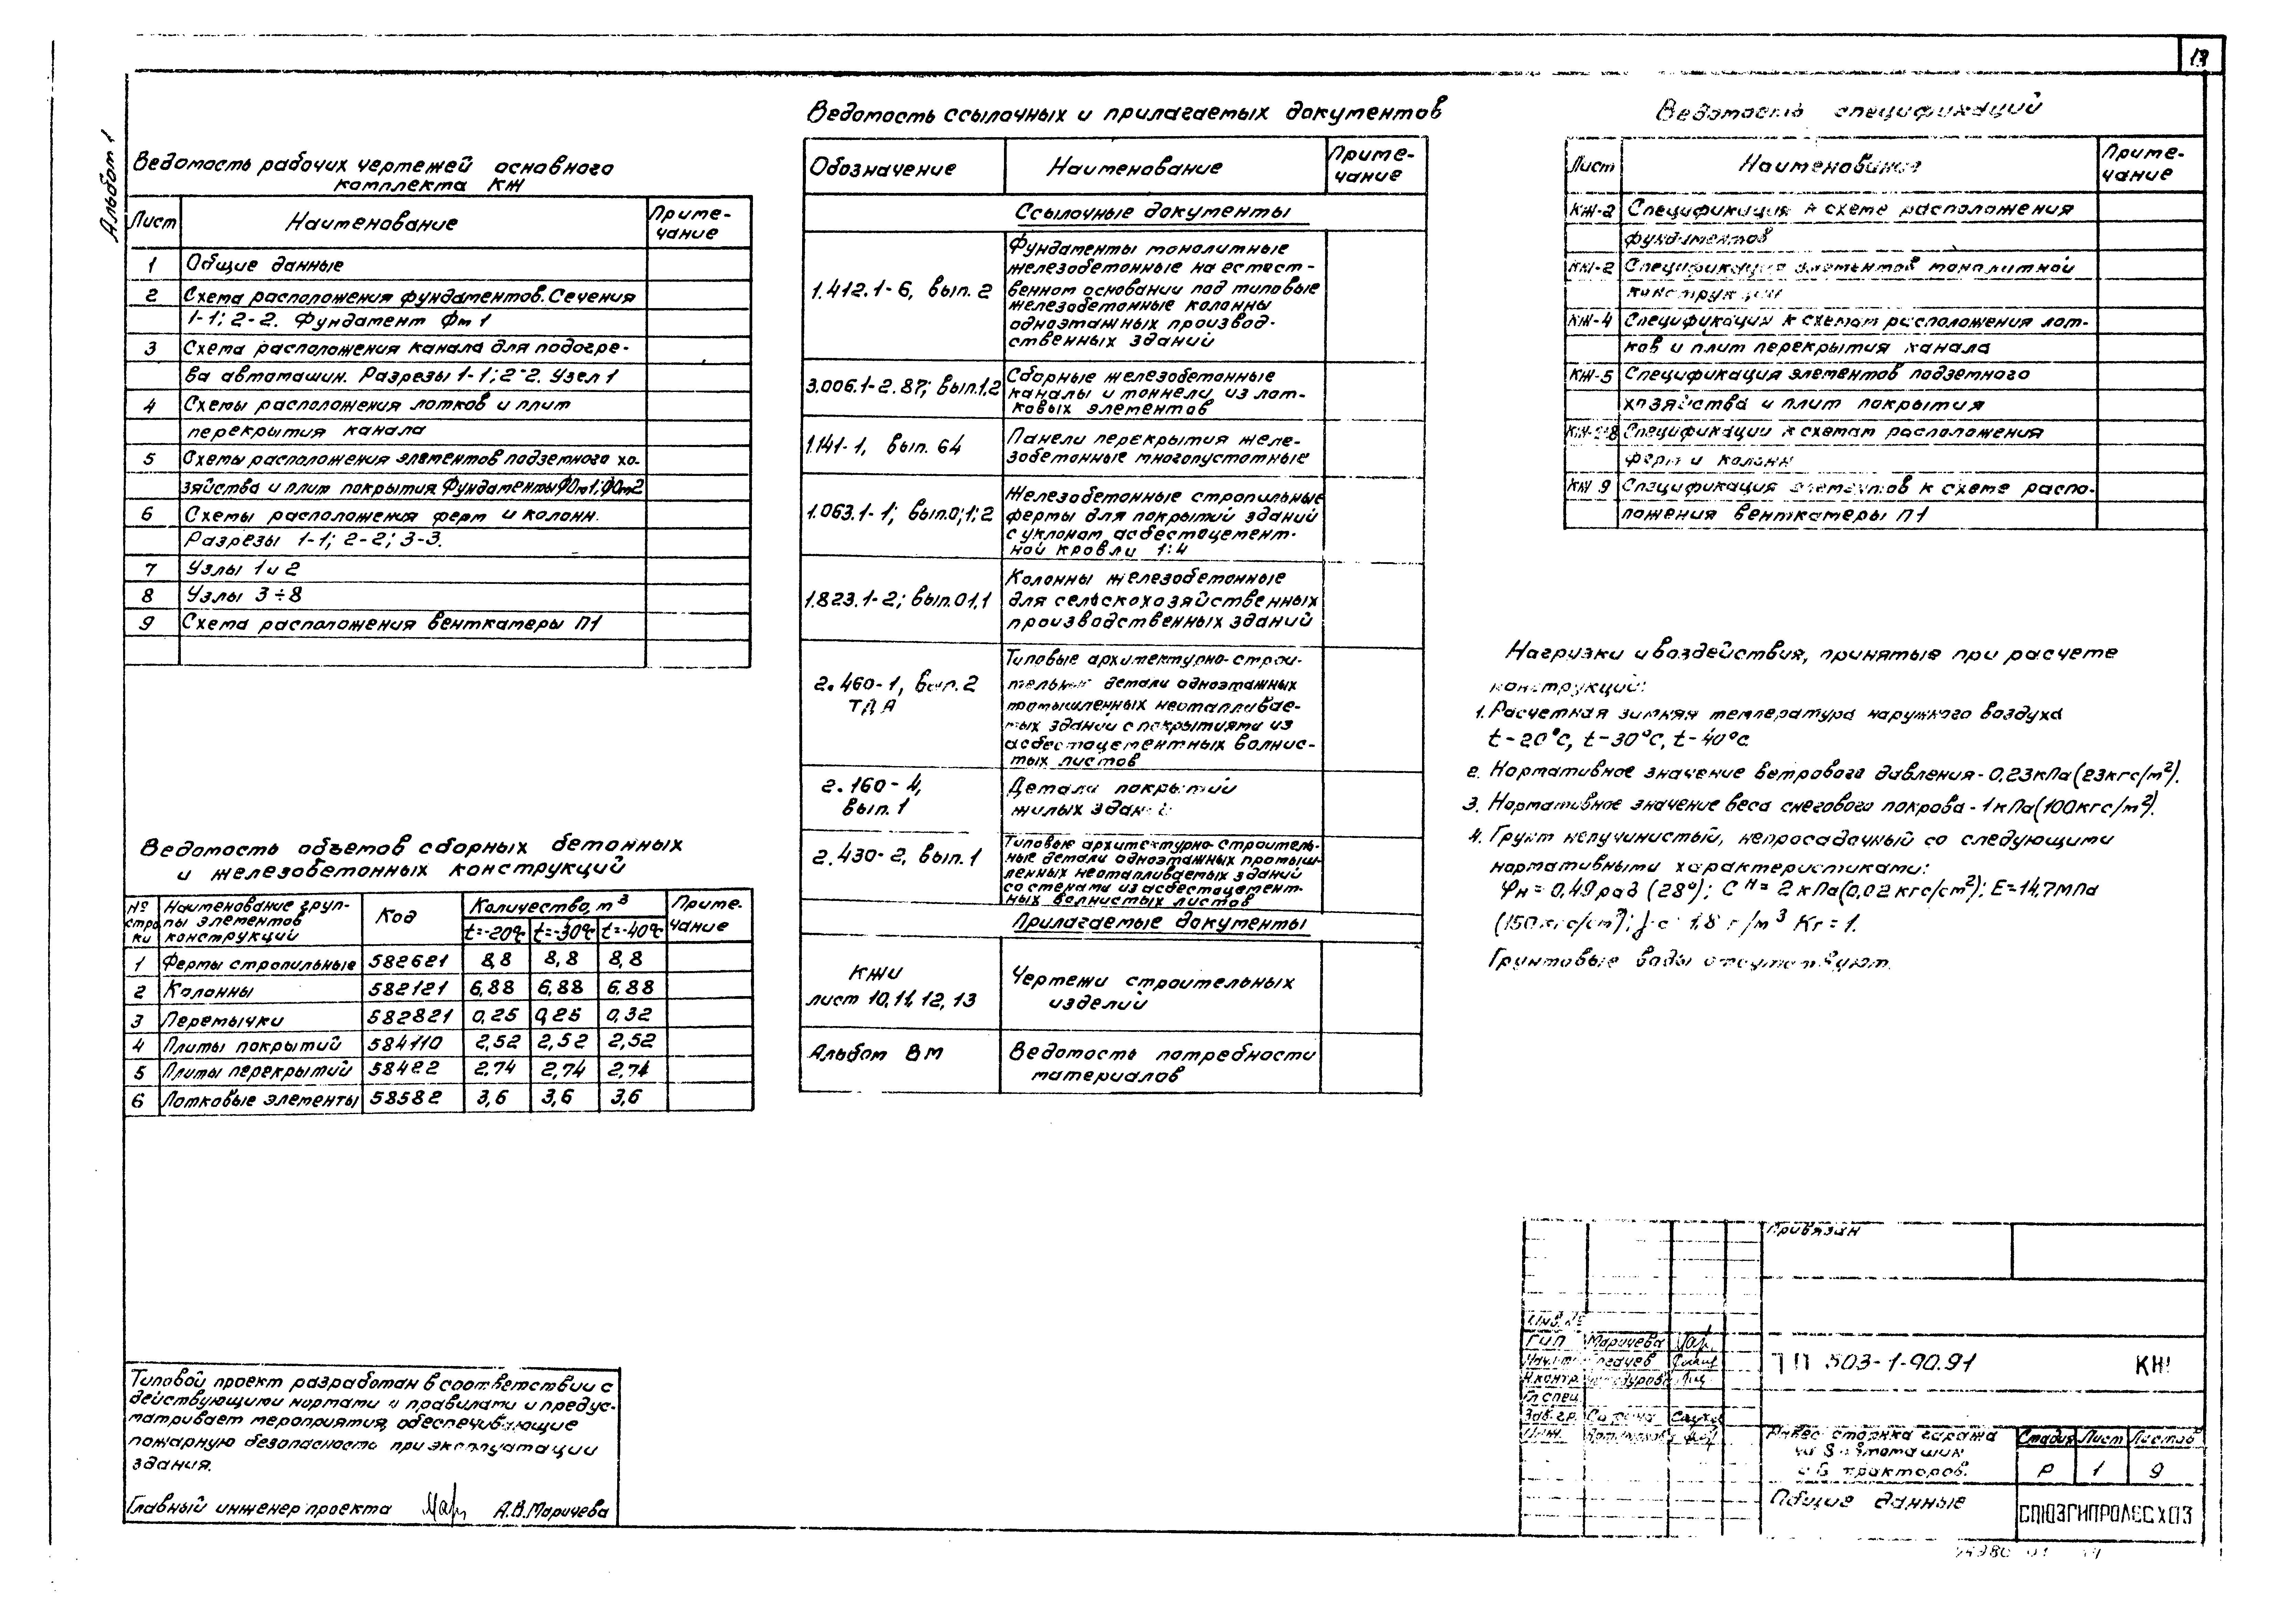 13
Альбом 1
Ведомость рабочих чертежей основного
комплекта КЖ
Лист Наименование Приме-
чание
1 Общие данные
2 Схема расположения фундаментов. Сечения
1-1; 2-2. Фундамент Фм 1
3 Схема расположения канала для подогре-
ва автомашин. Разрезы 1-1; 2-2. Узел 1
4 Схемы расположения лотков и плит
перекрытия канала
5 Схемы расположения элементов подземного хо-
зяйства и плит покрытия. Фундаменты ФОм1; ФОм2
6 Схемы расположения ферм и колонн.
Разрезы 1-1; 2-2; 3-3.
7 Узлы 1 и 2
8 Узлы 3÷8
9 Схема расположения венткамеры П1
Ведомость объемов сборных бетонных
и железобетонных конструкций
№ строки Наименование груп-
пы элементов
конструкций Код Количество, м³ Приме-
чание
t=-20°С t=-30°С t=-40°С
1 Фермы стропильные 582621 8,8 8,8 8,8
2 Колонны 582121 6,88 6,88 6.88
3 Перемычки 582821 0,25 0,25 0,32
4 Плиты покрытий 584110 2,52 2,52 2,52
5 Плиты перекрытий 58422 2,74 2,74 2,74
6 Лотковые элементы 58582 3,6 3,6 3,6
Типовой проект разработан в соответствии с
действующими нормами и правилами и предус-
матривает мероприятия, обеспечивающие
пожарную безопасность при эксплуатации
здания.
Главный инженер проекта А.В.Маричева
Ведомость ссылочных и прилагаемых документов
Обозначение Наименование Приме-
чание
Ссылочные документы
1.412.1-6, вып. 2 Фундаменты монолитные
железобетонные на естест-
венном основании под типовые
железобетонные колонны
одноэтажных производ-
ственных зданий
3.006.1-2.87; вып.1,2 Сборные железобетонные
каналы и тоннели из лот-
ковых элементов
1.141-1, вып. 64 Панели перекрытия желе-
зобетонные многопустотные
1.063.1-1; вып.0;1;2 Железобетонные стропильные
фермы для покрытий зданий
с уклоном асбестоцемент-
ной кровли 1:4
1.823.1-2; вып.01,1 Колонны железобетонные
для сельскохозяйственных
производственных зданий
2.460-1, вып. 2
ТДА
Типовые архитектурно-строи-
тельные детали одноэтажных
промышленных неотапливае-
мых зданий с покрытиями из
асбестоцементных волнис-
тых листов
2.160-4,
вып. 1
Детали покрытий
жилых зданий
2.430-2, вып. 1 Типовые архитектурно-строитель-
ные детали одноэтажных промыш-
ленных неотапливаемых зданий
со стенами из асбестоцемент-
ных волнистых листов
Прилагаемые документы
КЖИ
лист 10,11,12,13
Чертежи строительных
изделий
Альбом ВМ Ведомость потребности
материалов
Ведомость спецификаций
Лист Наименование Приме-
чание
КЖ-2 Спецификация к схеме расположения
фундаментов
КЖ-2 Спецификация элементов монолитной
конструкции
КЖ-4 Спецификации к схемам расположения лот-
ков и плит перекрытия канала
КЖ-5 Спецификация элементов подземного
хозяйства и плит покрытия
Спецификации к схемам расположения
ферм и колонн
КЖ 9 Спецификация элементов к схеме распо-
ложения венткамеры П1
Нагрузки и воздействия, принятые при расчете
конструкций:
1. Расчетная зимняя температура наружного воздуха
t-20°С, t-30°С, t-40°С
2. Нормативное значение ветрового давления-0,23кПа(23кгс/м²).
3. Нормативное значение веса снегового покрова-1кПа(100кгс/м²).
4. Грунт непучинистый, непросадочный со следующими
нормативными характеристиками:
φн=0,49 рад (28°); Сн=2 кПа(0,02 кгс/см²); Е=14,7мПа
(150кгс/см²); 1,8 г/м³ Кг=1.
Грунтовые воды отсутствуют.
Привязан
Инв. №
ГИП Маричева
Нач.
Н.контр.
Гл.спец.
Зав.гр.
Инж.
ТП 503-1-90.91 КЖ
стоянка гаража
на 8 автомашин
и 6 тракторов.
Стадия Лист Листов
Р 1 9
Общие данные
СОЮЗГИПРОЛЕСХОЗ